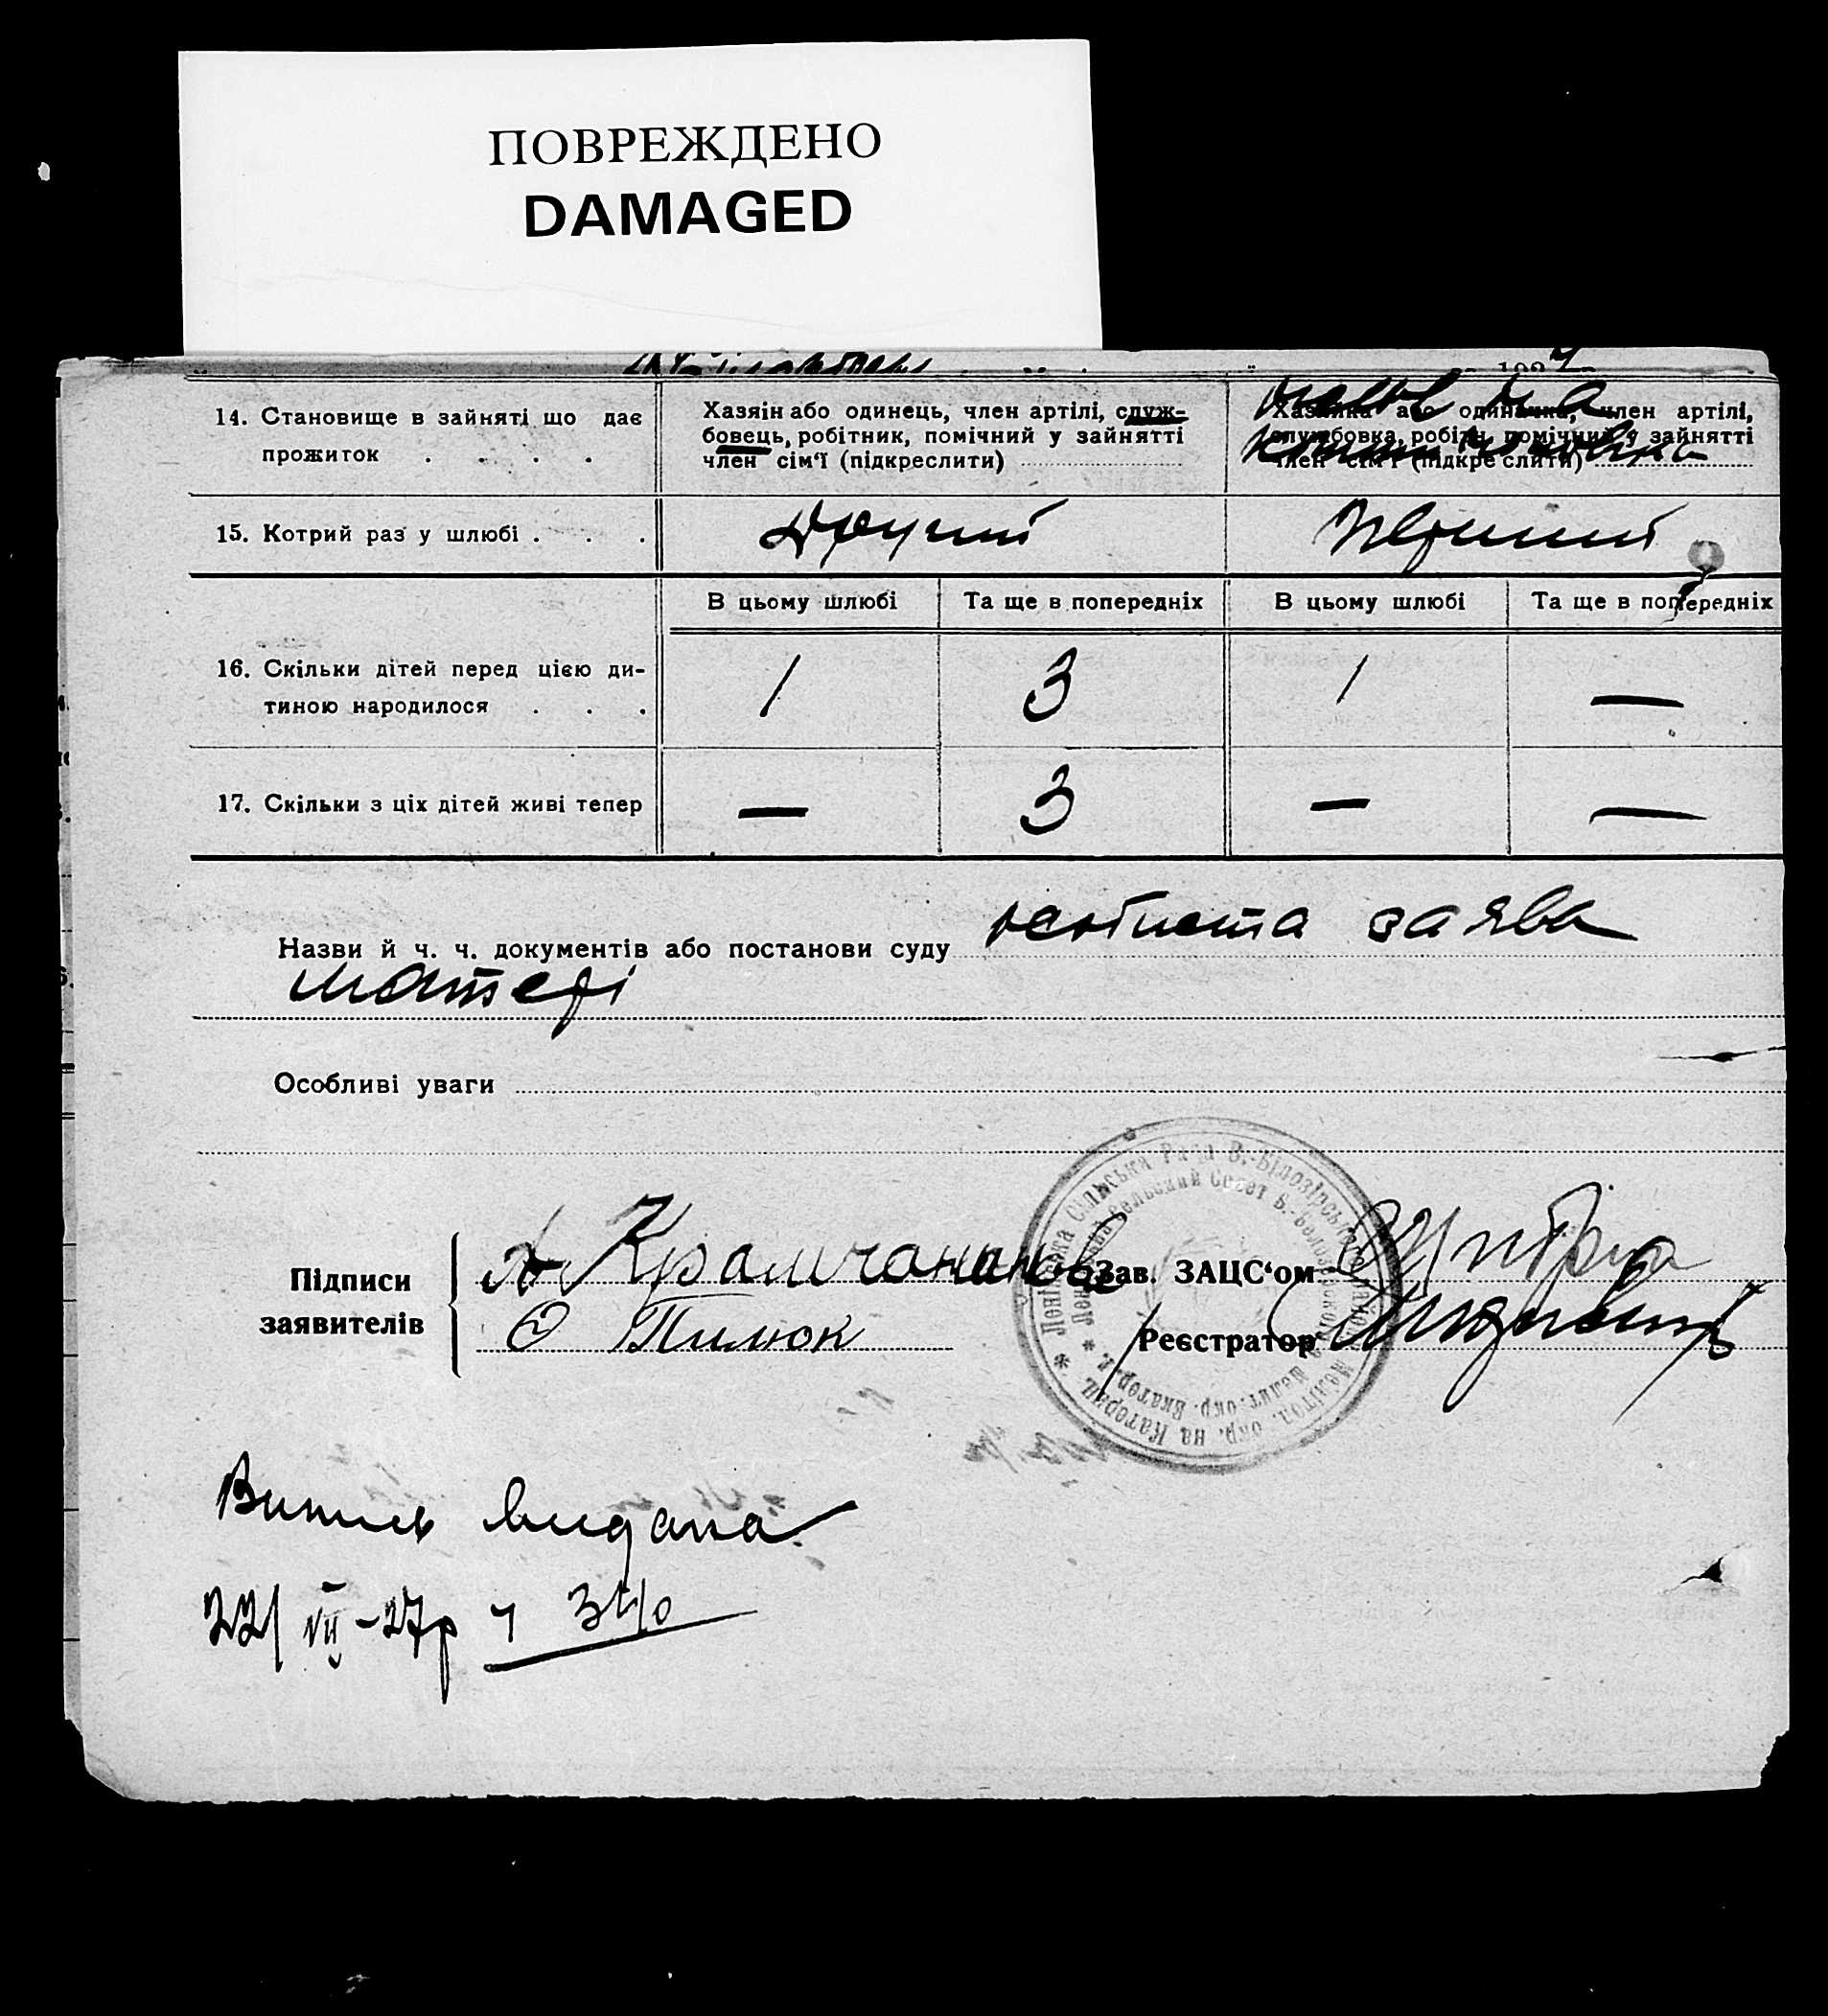 ПОВРЕЖДЕНО
DAMAGED
14. Становище в зайняті що дає
прожиток . . . .
Хазяін або одинець, член артілі, служ-
бовець, робітник, помічний у зайнятті
член сім'ї (підкреслити)
Хазяйка або одиначка, член артілі,
службовка, робітн. помічний у зайнятті
член сім'ї (підкреслити)
15. Котрий раз у шлюбі . . .
Другий
Перший
В цьому шлюбі
Та ще в попередніх
В цьому шлюбі
Та ще в попередніх
16. Скільки дітей перед цією ди-
тиною народилося . . .
1
3
1
—
17. Скільки з ціх дітей живі тепер
—
3
—
—
Назви й ч. ч. документів або постанови суду особиста заява
матері
Особливі уваги
Підписи
заявителів
Х Крамчанинов
О Тилюк
Зав. ЗАЦС'ом
Реєстратор
Ленінська Сільська Рада В.-Білозірськ
Мелітоп. окр. на Катериц.
сельский Совет Б.-Белозерского
Мелит. окр. Екатер. г.
Випись видана
22/VII-27р ч